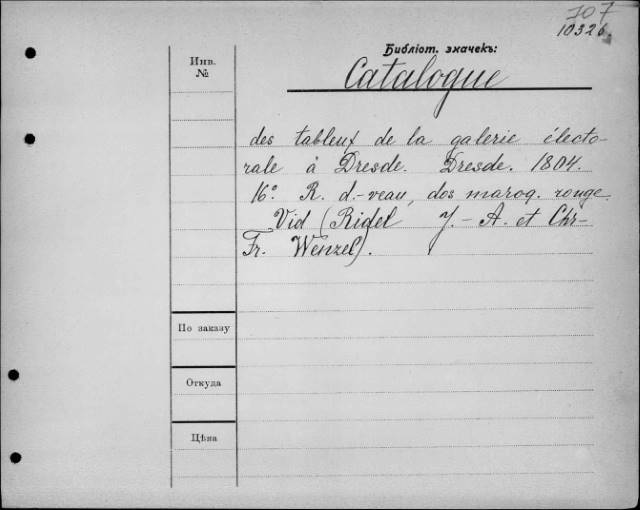 707
10326.
Библіот. значекъ:
Инв.
№
Catalogue
des tableux de la galerie électo-
rale à Dresde. Dresde. 1804.
16° R. d.-veau, dos maroq. rouge.
Vid (Ridel J.-A. et Chr-
Fr. Wenzel).
По заказу
Откуда
Цѣна